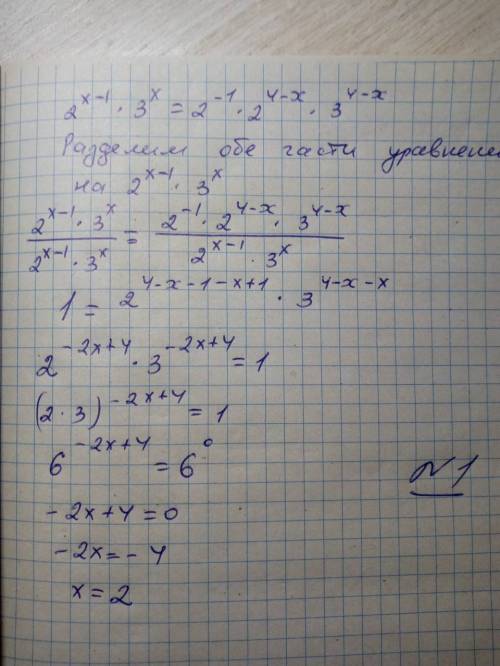 2^{x-1} · 3^x = 2^{-1} · 2^{4-x} · 3^{4-x}
Разделим обе части уравнен
на 2^{x-1} · 3^x
\frac{2^{x-1} · 3^x}{2^{x-1} · 3^x} = \frac{2^{-1} · 2^{4-x} · 3^{4-x}}{2^{x-1} · 3^x}
1 = 2^{4-x-1-x+1} · 3^{4-x-x}
2^{-2x+4} · 3^{-2x+4} = 1
(2 · 3)^{-2x+4} = 1
6^{-2x+4} = 6^0
№1
-2x+4=0
-2x=-4
x=2